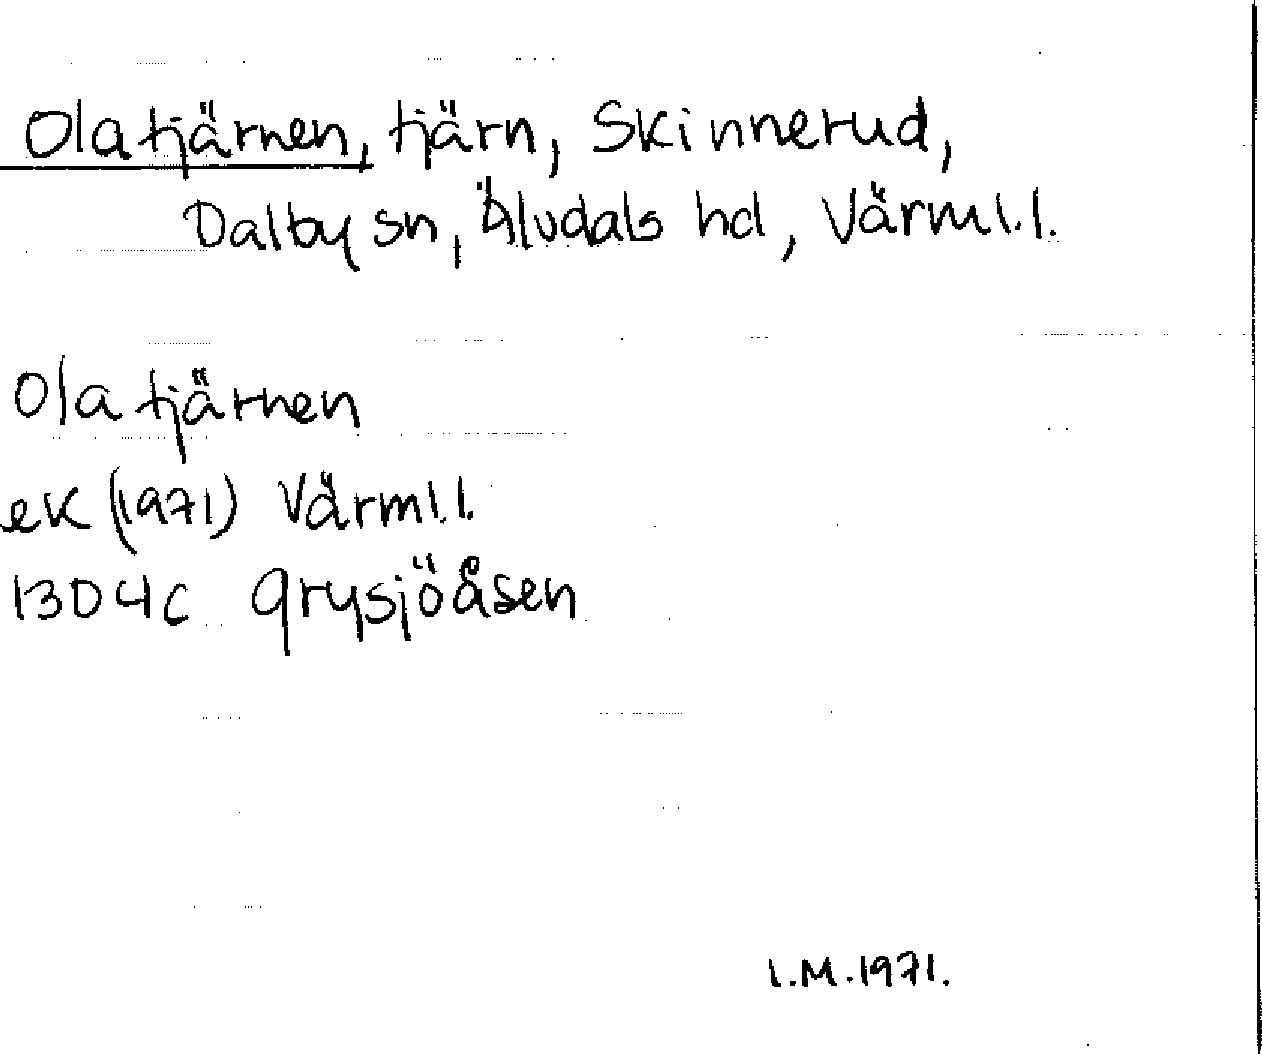 Olatjärnen, tjärn, Skinnerud,
Dalby sn, Älvdals hd, Värml.l.
Olatjärnen
ek (1971) Värml.l.
13D4c Grysjöåsen
I.M.1971.